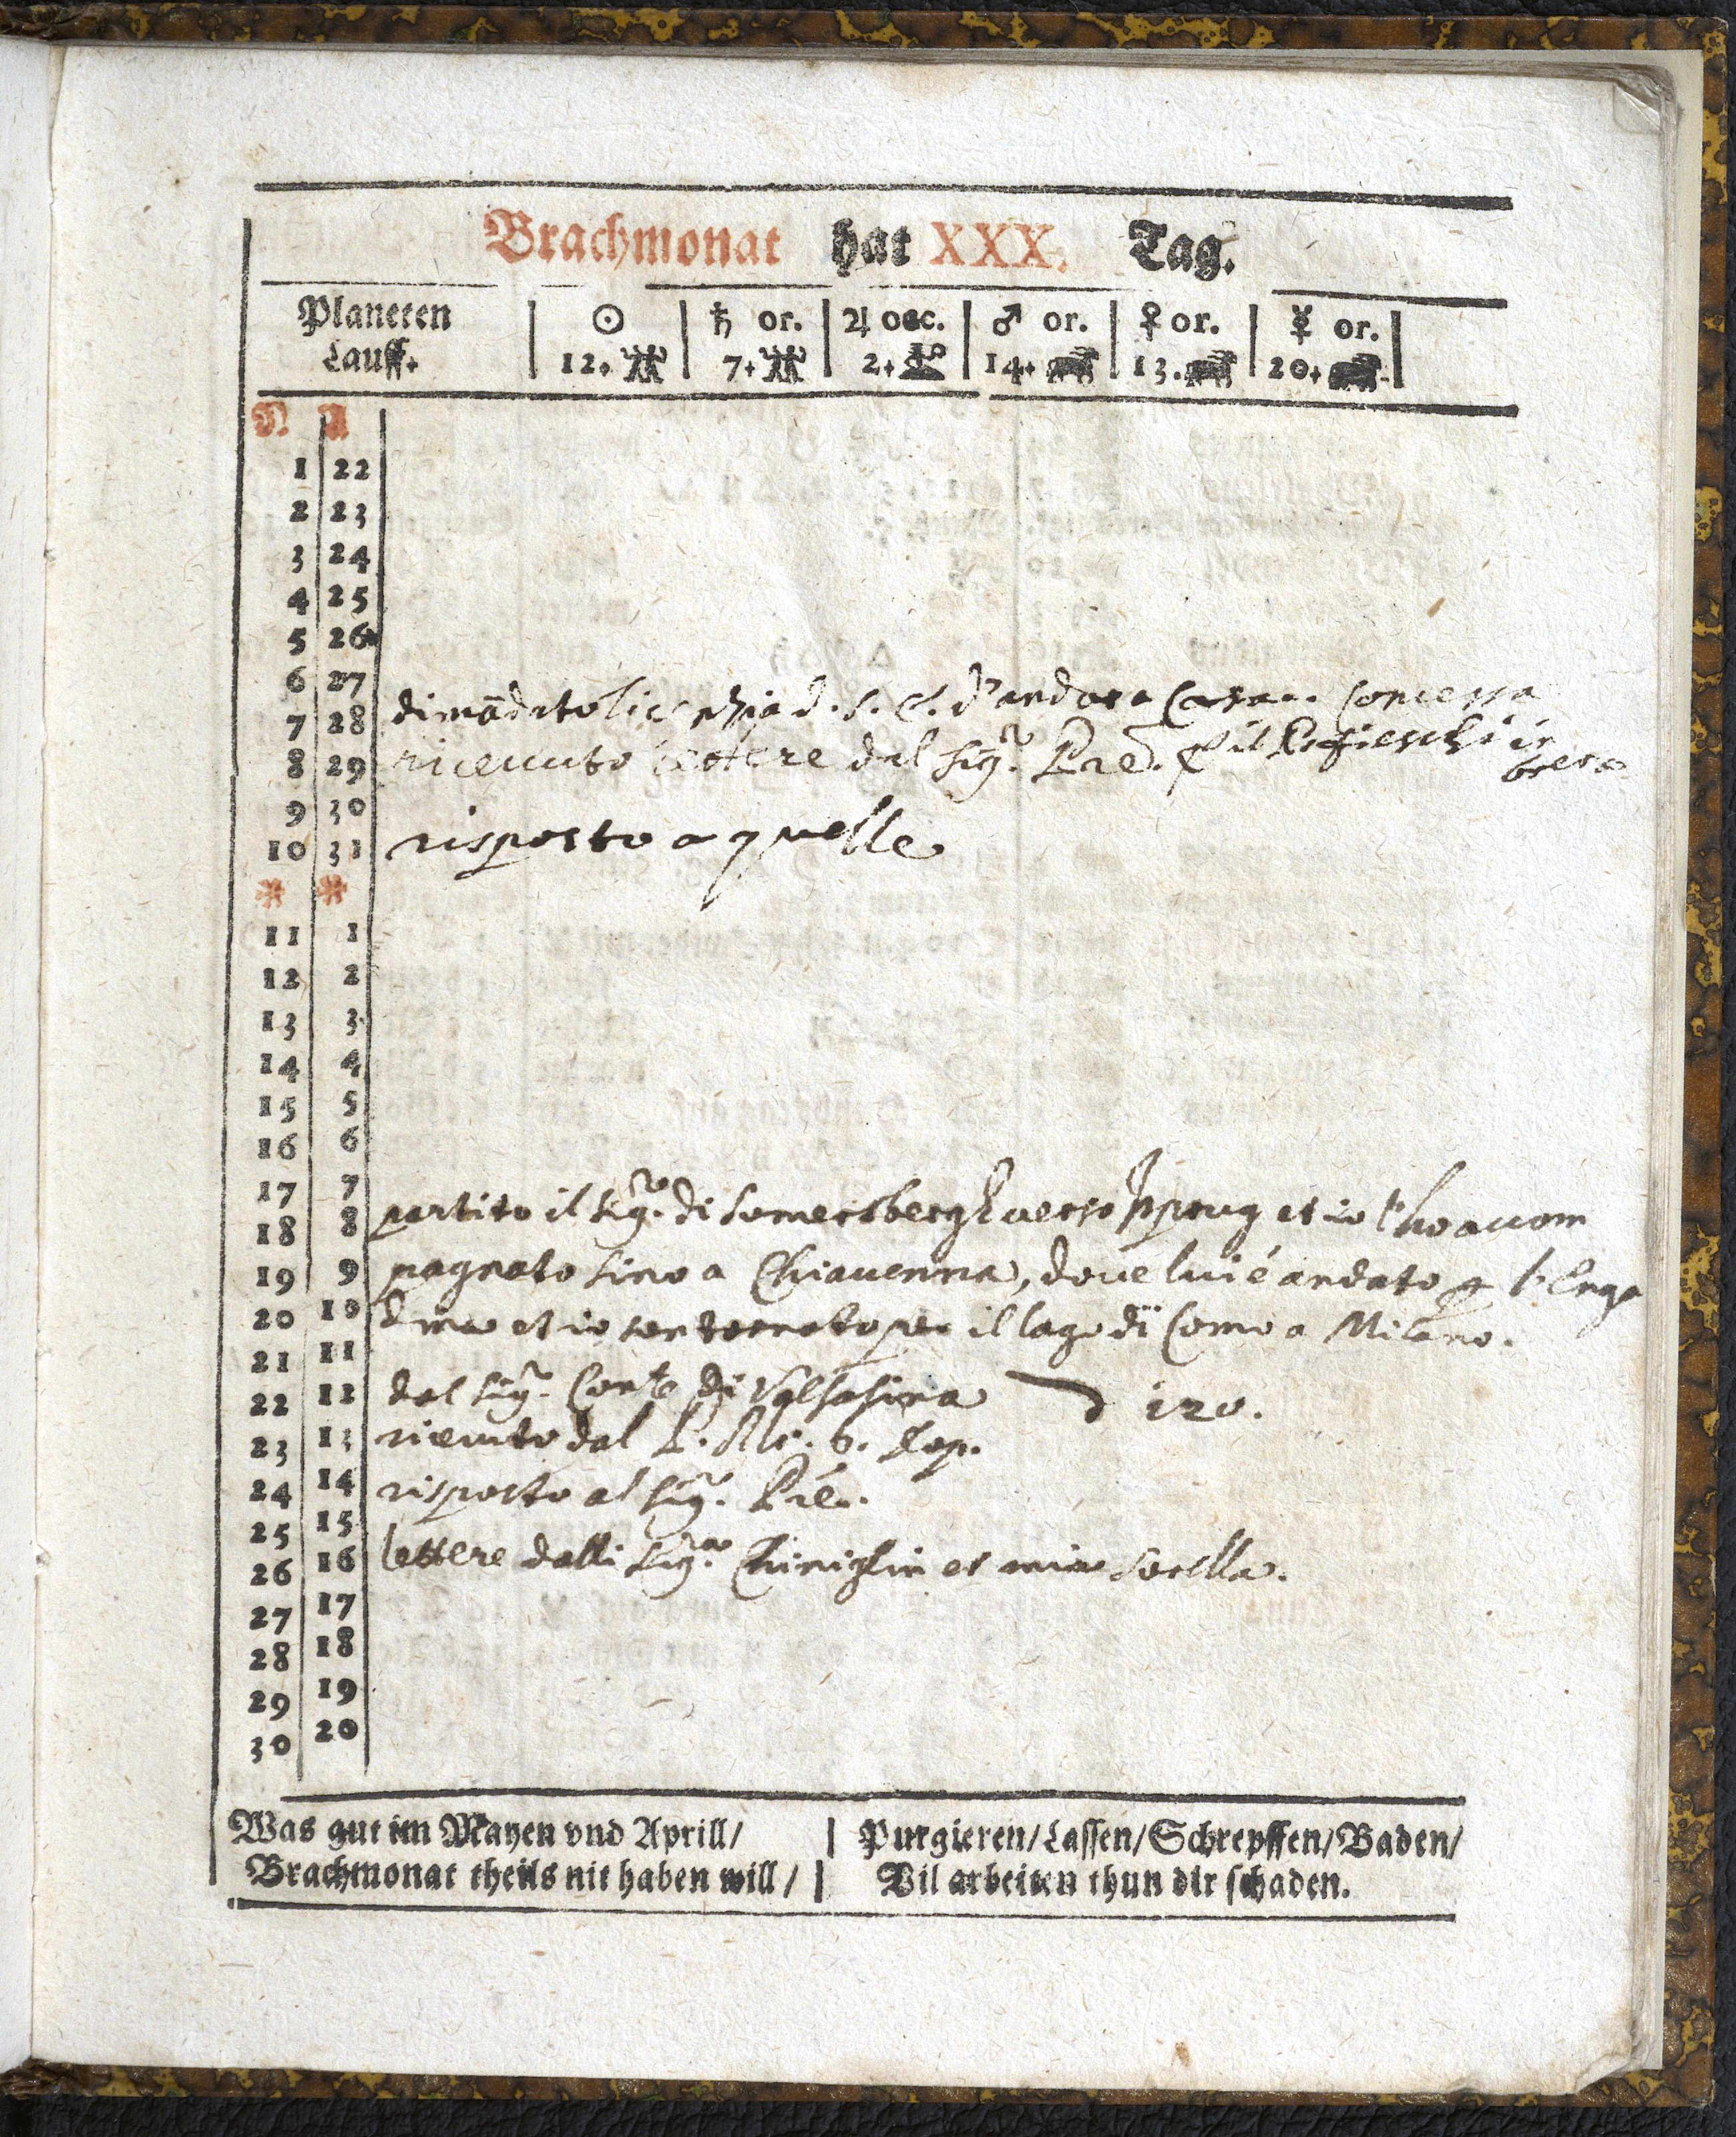 Brachmonat hat XXX. Tag.
Planeten Lauff. | ☉ 12. | ♄ or. 7. | ♃ occ. 2. | ♂ or. 14. | ♀ or. 13. | ☿ or. 20.
N A
1 22
2 23
3 24
4 25
5 26
6 27
7 28 dimādato d. s. e. d'andar a Casa. concessa
8 29 ricevuto lettere dal Sigr. Pre. il
9 30
10 31 risposto a quelle
* *
11 1
12 2
13 3
14 4
15 5
16 6
17 7
18 8 partito il Sigr. di Somersbergh verso et io l'ho accom
19 9 pagnato sino a Chiavenna, dove lui é andato p l'Enga
20 10 dina et io son tornato per il lago di Como a Milano.
21 11
22 12 dal Sigr. Conte di Valsasina 120.
23 13 ricevuto dal 6. Dop.
24 14 risposto al Sigr. Pre.
25 15
26 16 lettere dalli Sigri. et mia sorella.
27 17
28 18
29 19
30 20
Was gut im Mayen vnd Aprill/ | Purgieren/ Lassen/ Schrepffen/ Baden/
Brachmonat theils nit haben will/ | Vil arbeiten thun dir schaden.